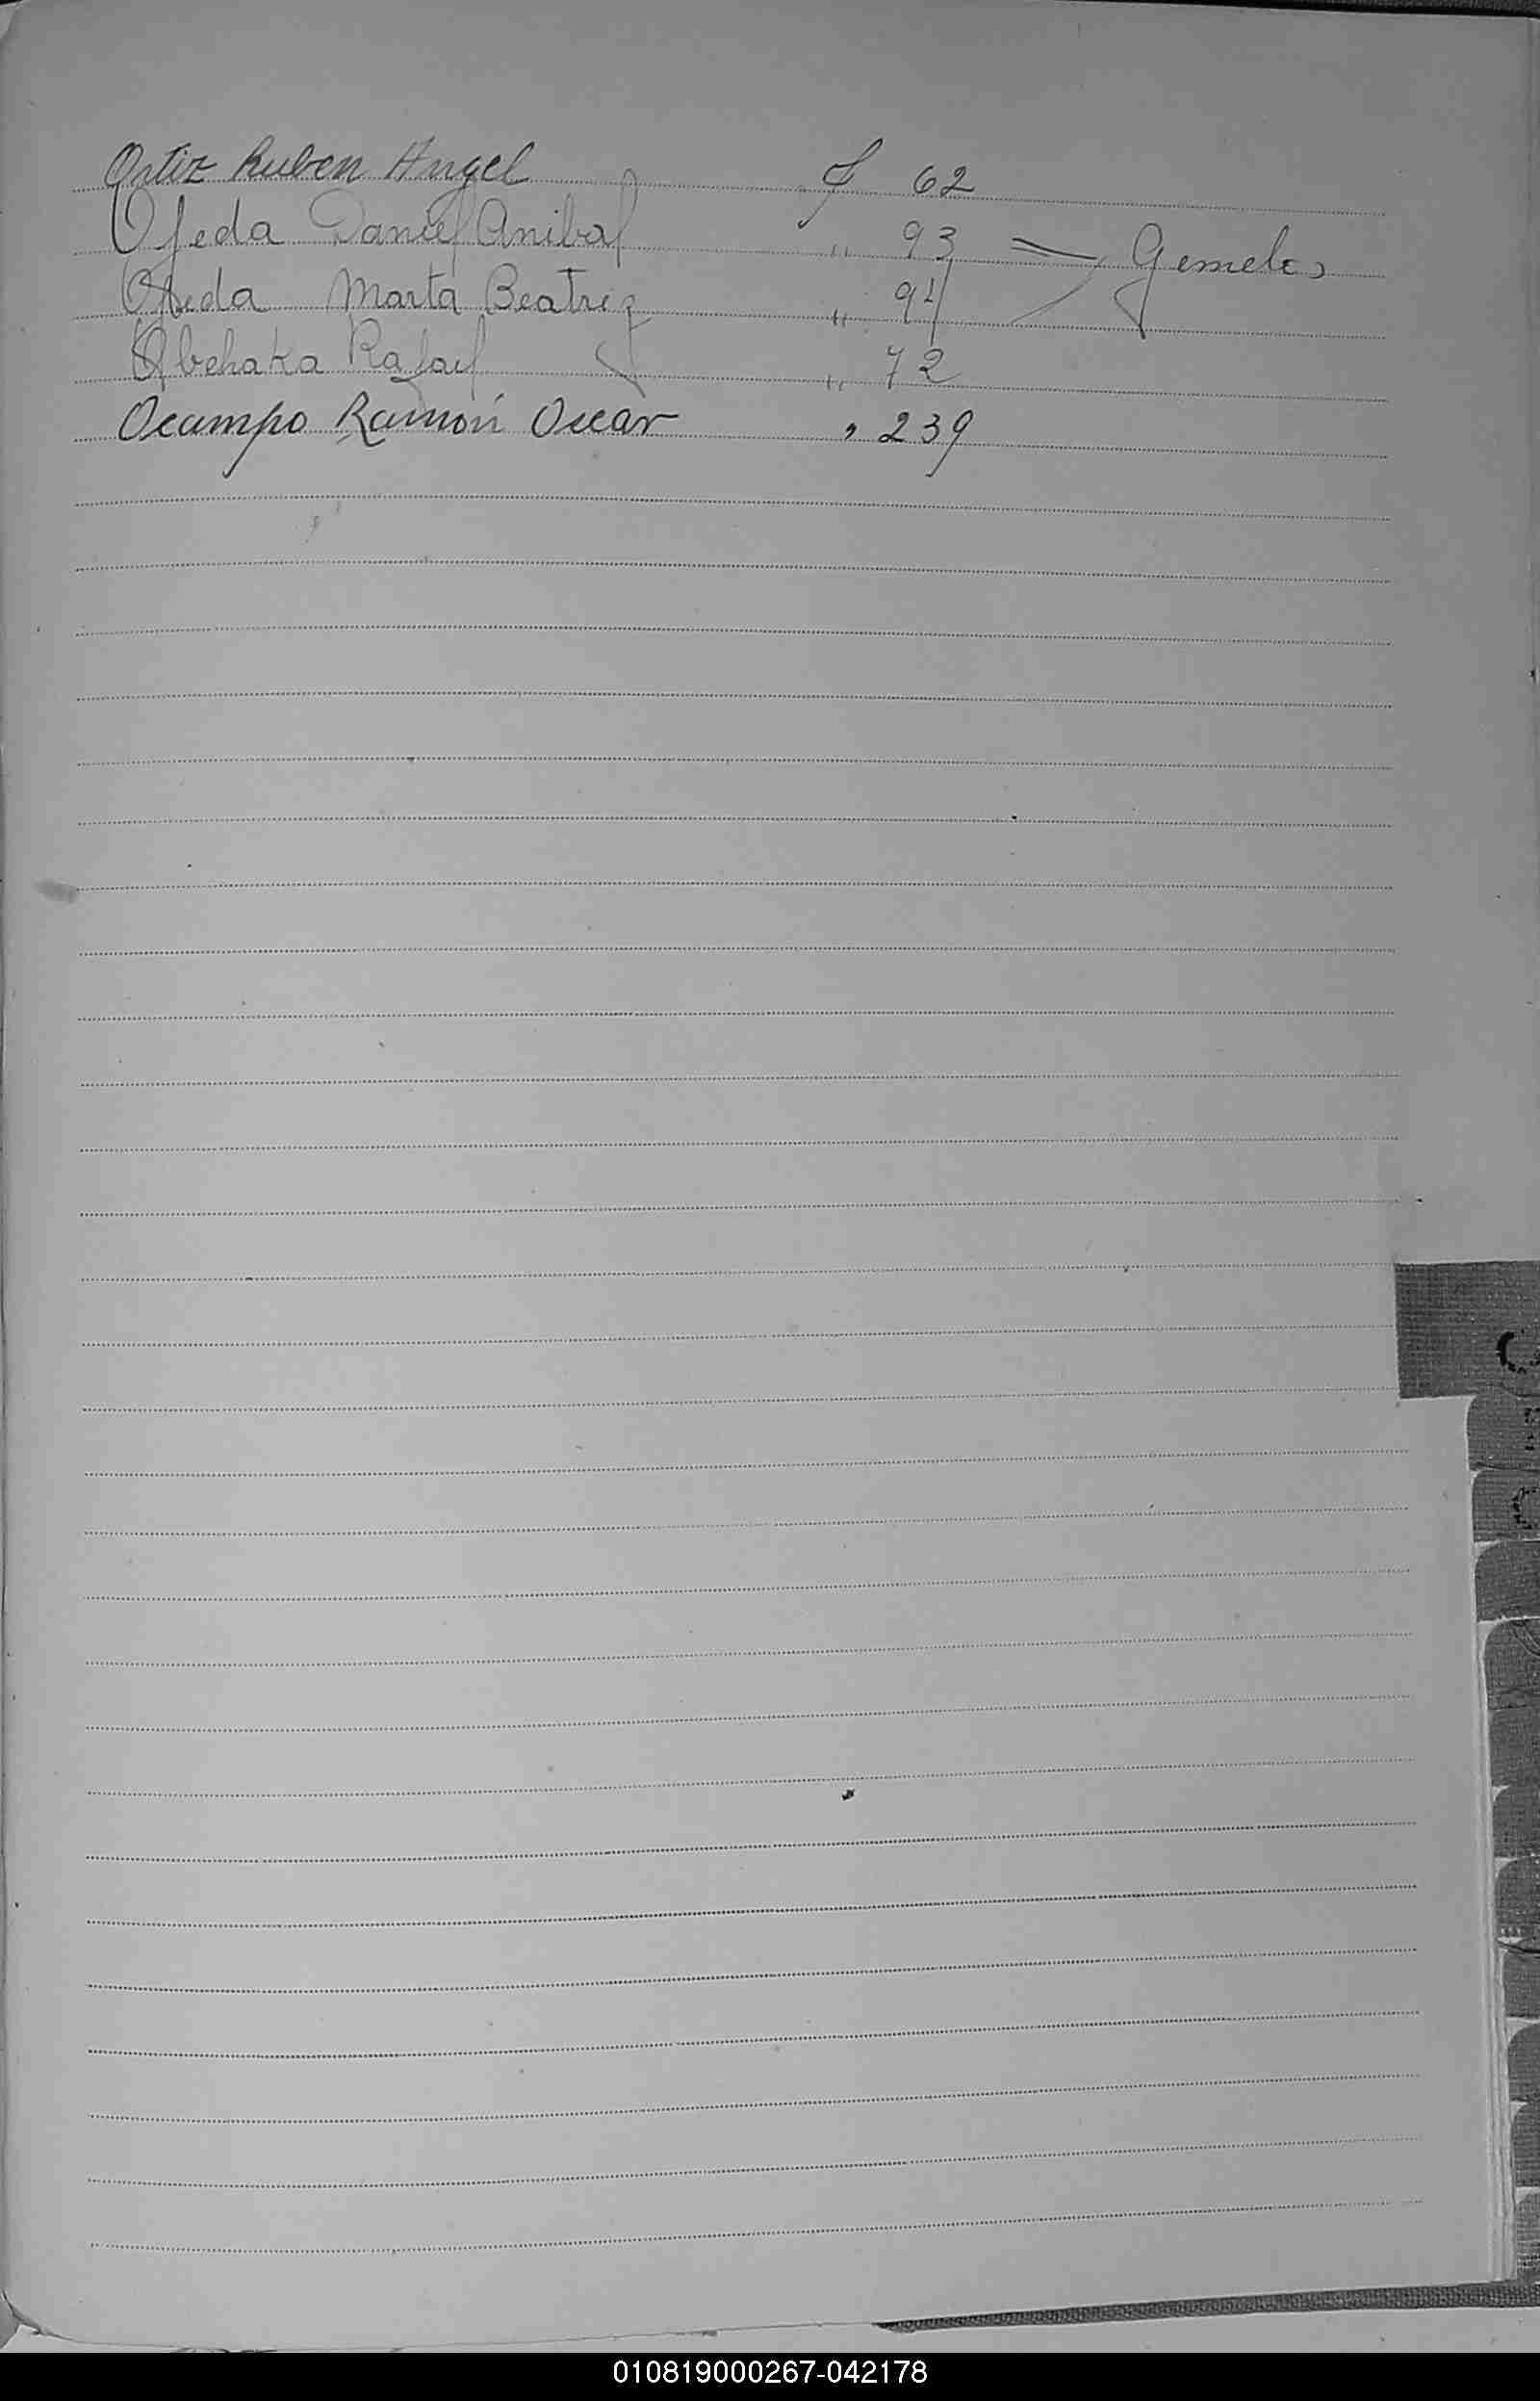 Ortiz Ruben Angel f 62
Ojeda Daniel Anibal " 93 Gemelos
Ojeda Marta Beatriz " 94
Rafael " 72
Ocampo Ramón Oscar " 239
010819000267-042178